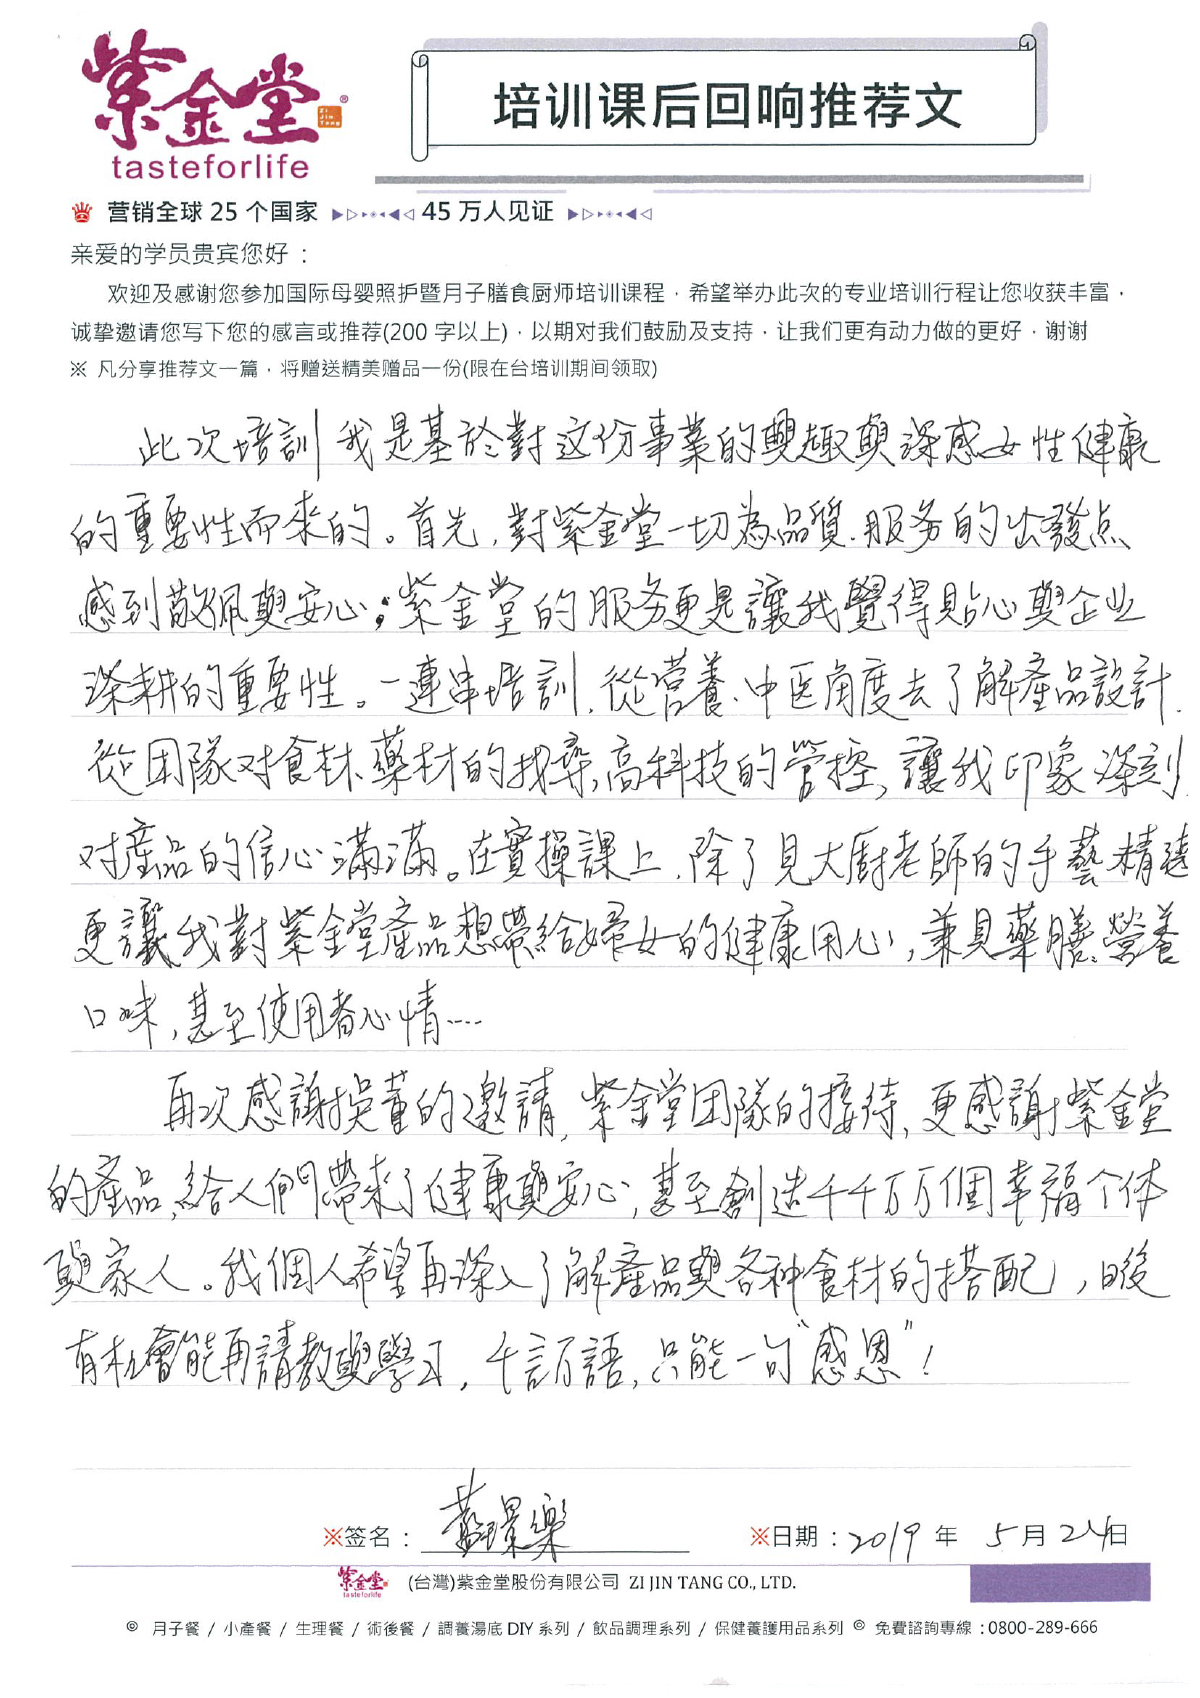 紫金堂®
Zi Jin Tang
tasteforlife
培训课后回响推荐文
营销全球 25 个国家 45 万人见证
亲爱的学员贵宾您好：
欢迎及感谢您参加国际母婴照护暨月子膳食厨师培训课程，希望举办此次的专业培训行程让您收获丰富，
诚挚邀请您写下您的感言或推荐(200 字以上)，以期对我们鼓励及支持，让我们更有动力做的更好，谢谢
※ 凡分享推荐文一篇，将赠送精美赠品一份(限在台培训期间领取)
此次培訓我是基於對这份事業的興趣與深感女性健康
的重要性而來的。首先,對紫金堂一切為品質、服务的出發点
感到敬佩與安心;紫金堂的服务更是讓我覺得貼心與企业
深耕的重要性。一連串培訓,從营養、中医角度去了解產品設計,
從团隊对食材、藥材的找尋,高科技的管控,讓我印象深刻,
对產品的信心滿滿。在實操課上,除了見大廚老師的手藝精湛
更讓我對紫金堂產品想帶給婦女的健康用心,兼具藥膳、營養
口味,甚至使用者心情……
再次感謝吳董的邀請,紫金堂团隊的接待,更感謝紫金堂
的產品,給人們帶來了健康與安心,甚至創造千千万万個幸福个体
與家人。我個人希望再深入了解產品與各种食材的搭配,日後
有机會能再請教與學习,千言万語,只能一句"感恩"!
※签名：
※日期：2019 年 5 月 24日
紫金堂 tasteforlife (台灣)紫金堂股份有限公司 ZI JIN TANG CO., LTD.
◎ 月子餐 / 小產餐 / 生理餐 / 術後餐 / 調養湯底 DIY 系列 / 飲品調理系列 / 保健養護用品系列 ◎ 免費諮詢專線：0800-289-666